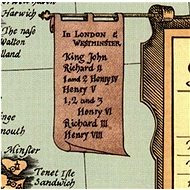 Harwich
The nase
Walton
lland
In London &
Westminster.
King John
Richard II
1 and 2 Henry IV
Henry V
1, 2 and 3
Henry VI
Richard III
Henry VIII
mouth
Minster
Tenet Isle
Sandwich